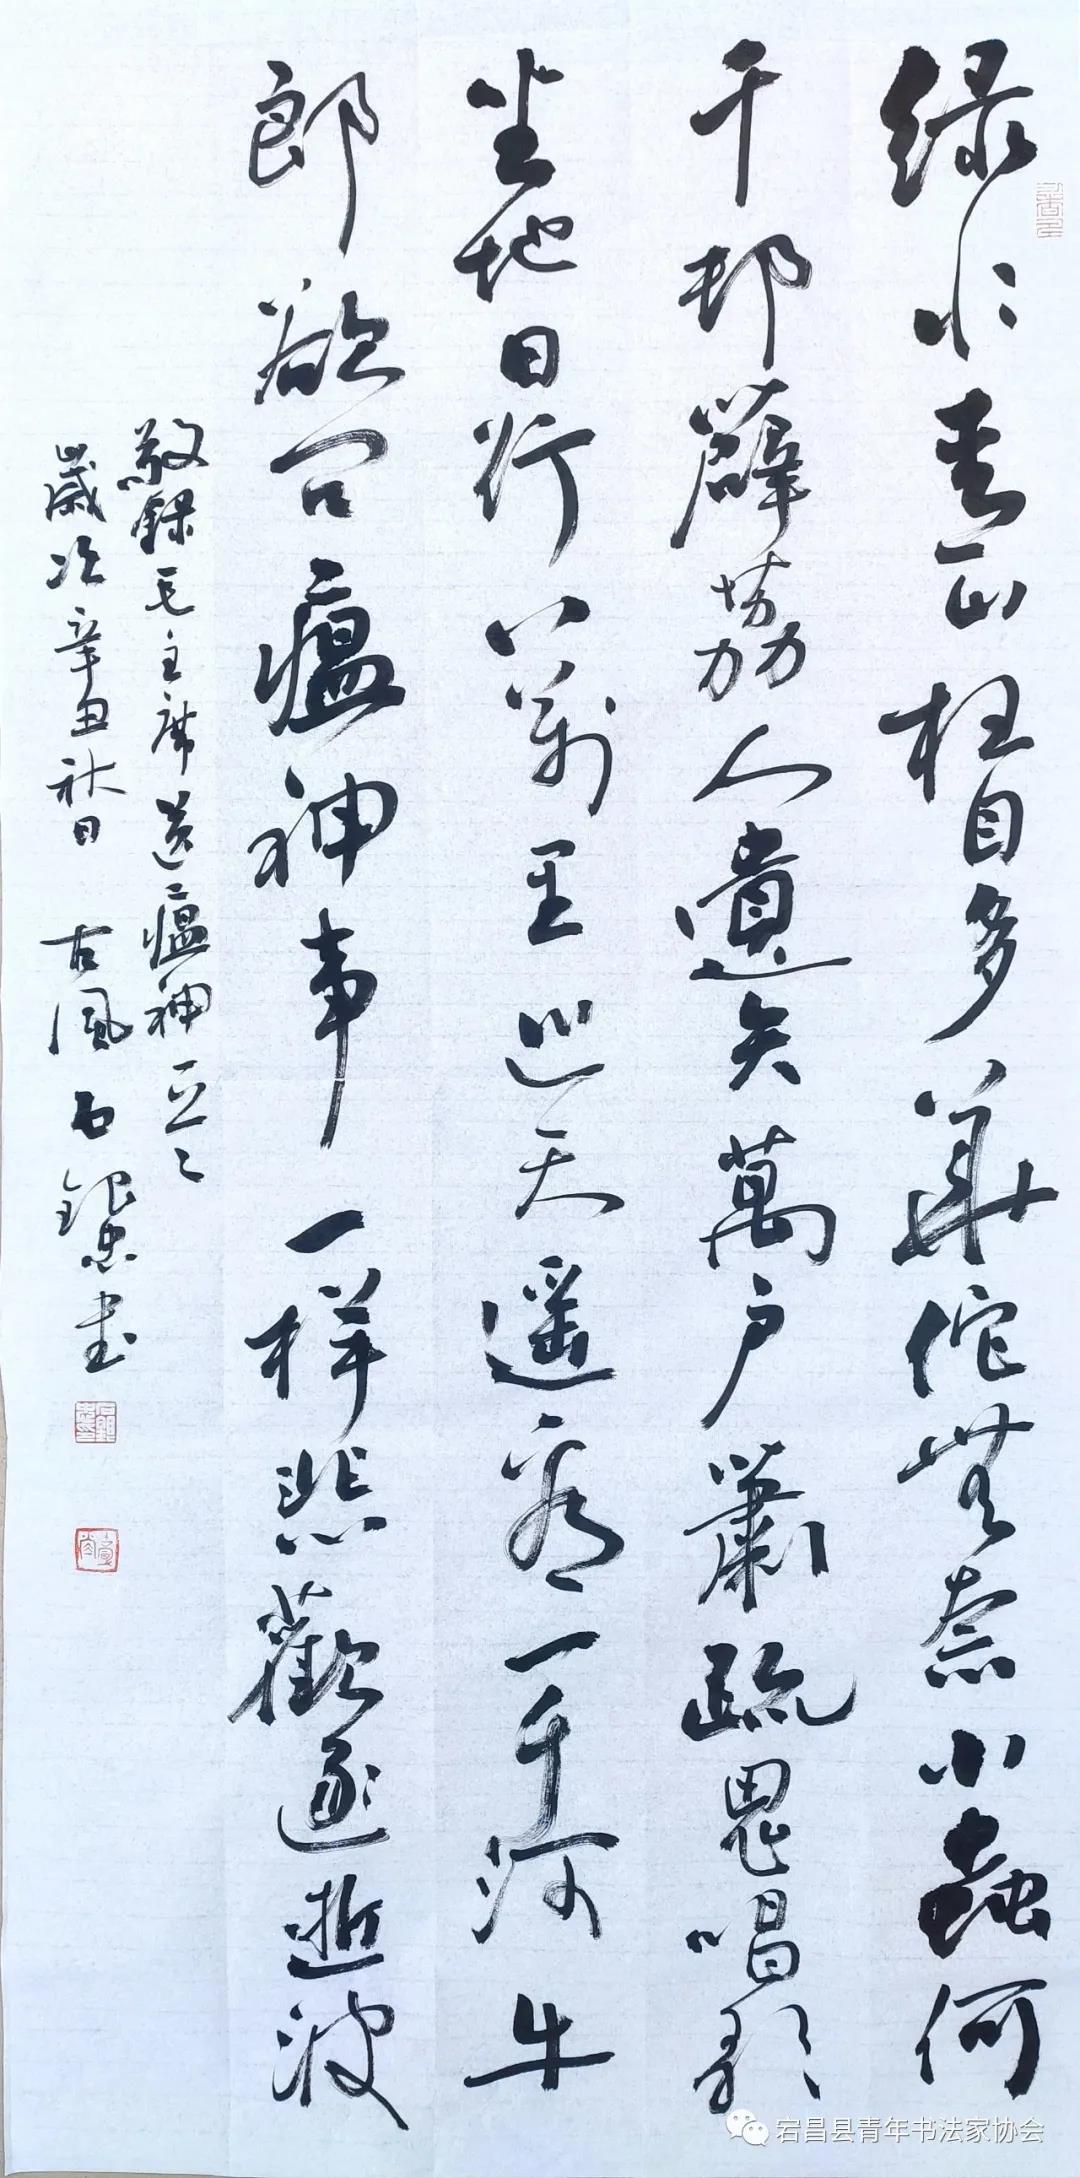 绿水青山枉自多華佗無奈小蟲何
千邨薜荔人遺矢萬户蕭疏鬼唱歌
坐地日行八萬里巡天遥看一千河牛
郎欲问瘟神事一样悲歡逐逝波
敬録毛主席送瘟神一首
歲次辛丑秋日 古風石銀忠书
宕昌县青年书法家协会